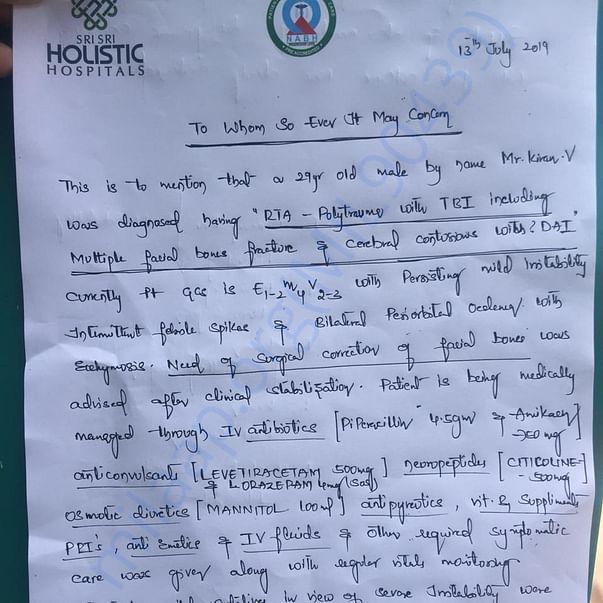 SRI SRI
HOLISTIC
HOSPITALS
NABH
13th July 2019
To Whom So Ever It May Concern
This is to mention that a 29yr old male by name Mr. Kiran.V
was diagnosed having "RTA - Polytrauma with TBI including
Multiple facial bones fracture & cerebral contusions with? DAI"
Currently Pt GCS is E1-2 M4 V2-3 with Persisting mild Instability
Intermittent febrile spikes & Bilateral Periorbital Oedema with
Ecchymosis. Need of surgical correction of facial bones was
advised after clinical stabilization. Patient is being medically
managed through IV antibiotics [Piperacillin 4.5gm & Amikacin
750mg]
anticonvulsants [LEVETIRACETAM 500mg] neuropeptides [CITICOLINE -
& LORAZEPAM 4mg (SOS) 500mg]
Osmotic diuretics [MANNITOL 100ml] antipyretics, vit. & Supplements
PPI's, anti emetics & IV fluids & other required symptomatic
care was given along with regular vitals monitoring
in view of severe Instability were